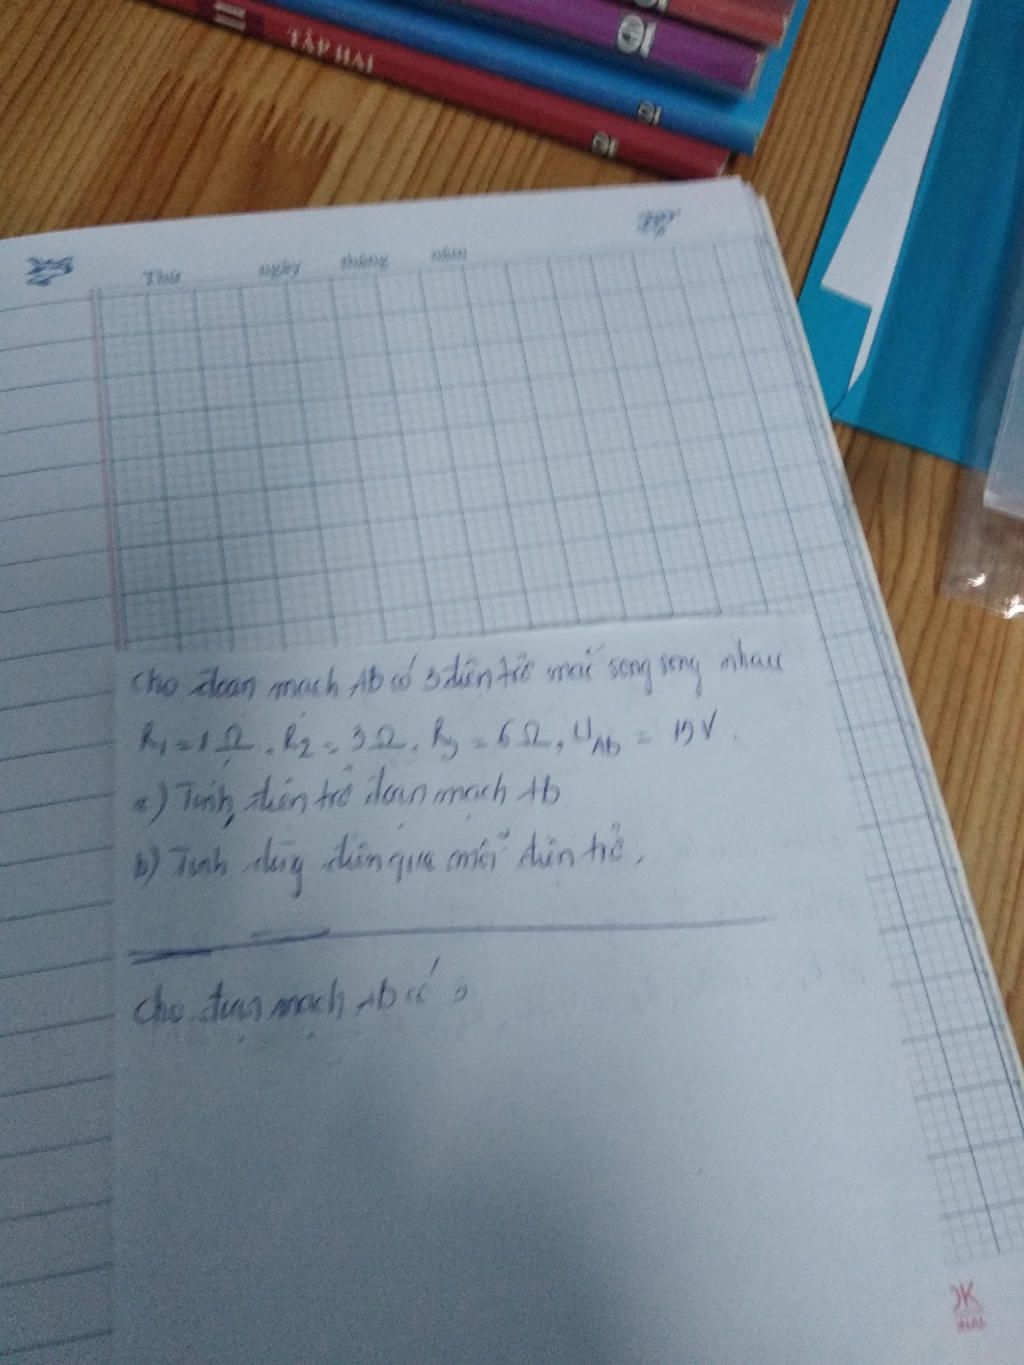 TẬP HAI
Thứ ngày tháng năm
Cho đoạn mạch AB có 3 điện trở mắc song song nhau
R₁ = 1 Ω, R₂ = 3 Ω, R₃ = 6 Ω, U_AB = 15 V.
a) Tính điện trở đoạn mạch AB
b) Tính dòng điện qua mỗi điện trở.
Cho đoạn mạch AB có